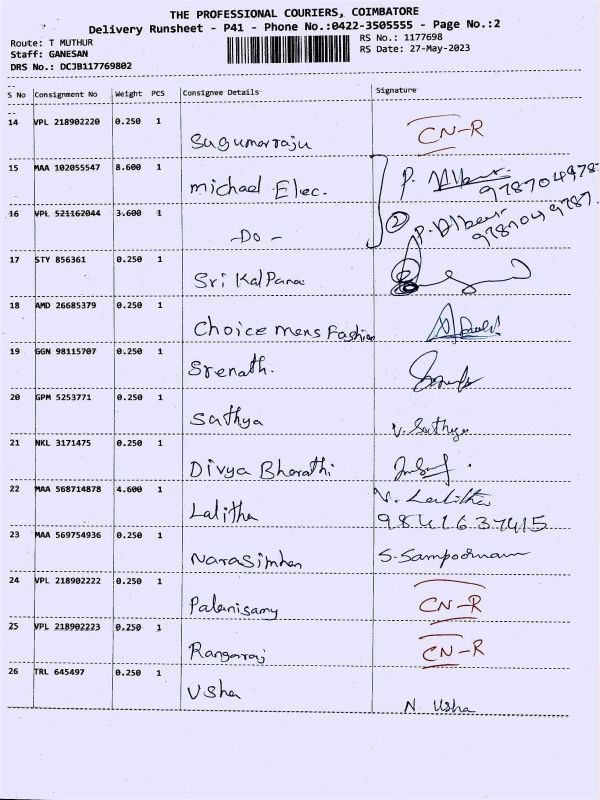 THE PROFESSIONAL COURIERS, COIMBATORE
Delivery Runsheet - P41 - Phone No.:0422-3505555 - Page No.:2
Route: T MUTHUR
RS No.: 1177698
Staff: GANESAN
RS Date: 27-May-2023
DRS No.: DCJB117769802
S No Consignment No Weight PCS Consignee Details Signature
14 VPL 218902220 0.250 1 Sugumarraju CN-R
15 MAA 102055547 8.600 1 michael Elec. P. Albeur
16 VPL 521162044 3.600 1 -Do- 2 P. Albeur
17 STY 856361 0.250 1 Sri Kalpana
18 AMD 26685379 0.250 1 Choice mens Fashion
19 GGN 98115707 0.250 1 Srenath.
20 GPM 5253771 0.250 1 Sathya V. Sathya
21 NKL 3171475 0.250 1 Divya Bharathi
22 MAA 568714878 4.600 1 Lalitha V. Lalitha
9841637415
23 MAA 569754936 0.250 1 Narasimhan S. Sampoornam
24 VPL 218902222 0.250 1 Palanisamy CN-R
25 VPL 218902223 0.250 1 Rangaraj CN-R
26 TRL 645497 0.250 1 Usha N Usha